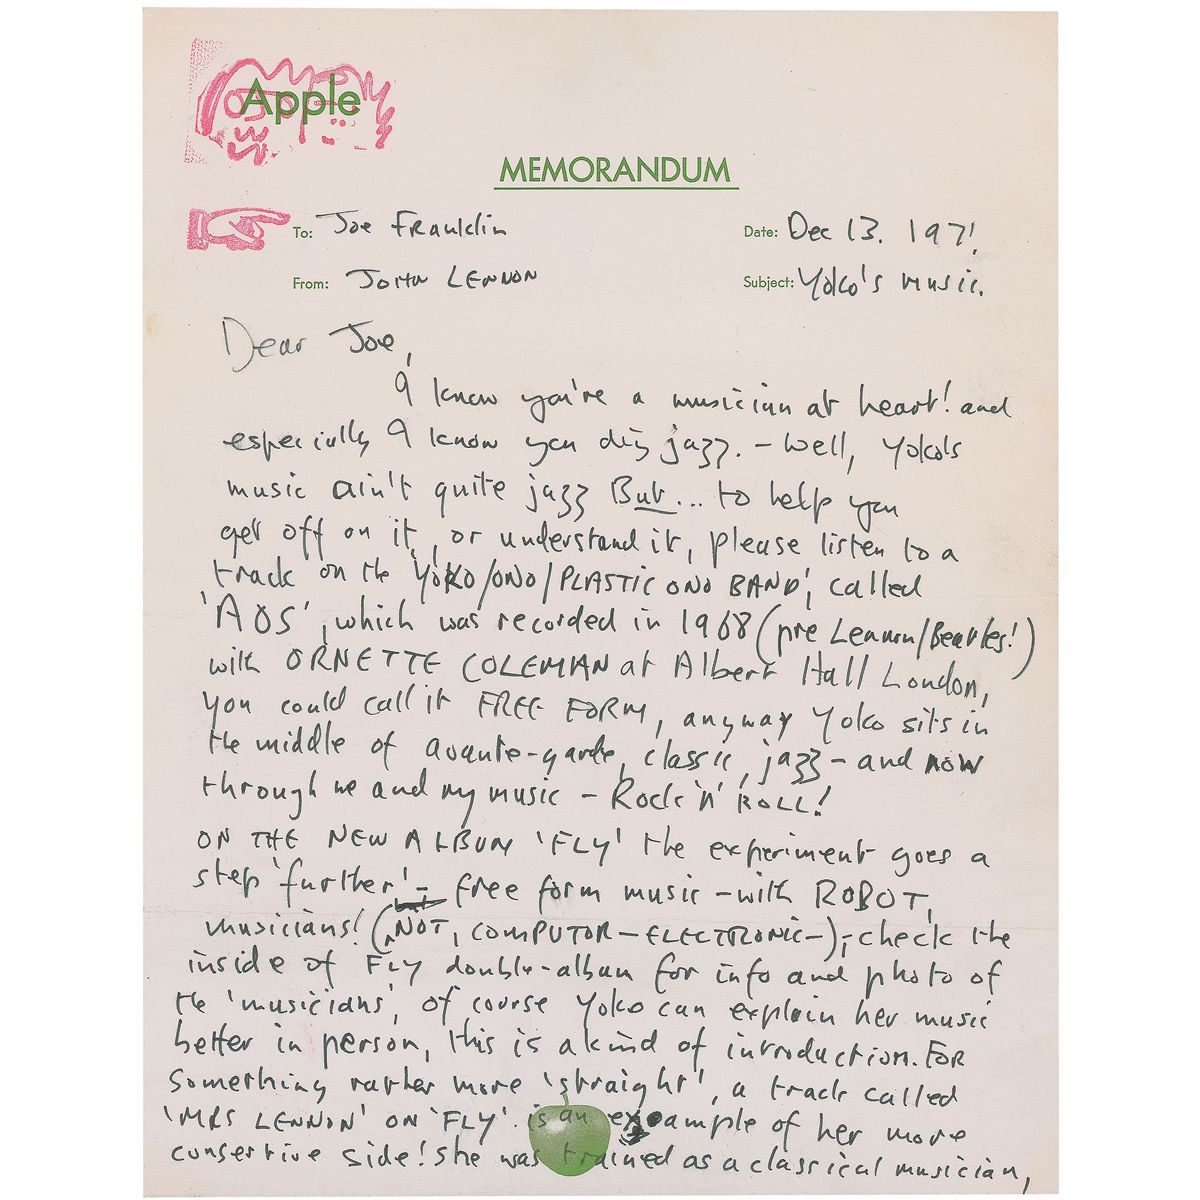 Apple
MEMORANDUM
To: Joe Franklin
Date: Dec 13. 1971.
From: JOHN LENNON
Subject: Yoko's music.
Dear Joe,
I know you're a musician at heart! and
especially I know you dig jazz. – well, Yoko's
music ain't quite jazz But... to help you
get off on it, or understand it, please listen to a
track on the 'YOKO/ONO/PLASTIC ONO BAND', called
'AOS', which was recorded in 1968 (pre Lennon/Beatles!)
with ORNETTE COLEMAN at Albert Hall London,
you could call it FREE FORM, anyway Yoko sits in
the middle of avante-garde, classic, jazz – and now
through me and my music – Rock 'n' ROLL!
ON THE NEW ALBUM 'FLY' the experiment goes a
step 'further' – free form music – with ROBOT,
musicians! (NOT, COMPUTOR – ELECTRONIC –); check the
inside of FLY double-album for info and photo of
the 'musicians', of course Yoko can explain her music
better in person, this is a kind of introduction. FOR
something rather more 'straight', a track called
'MRS LENNON' ON 'FLY' is an example of her more
consertive side! She was trained as a classical musician,